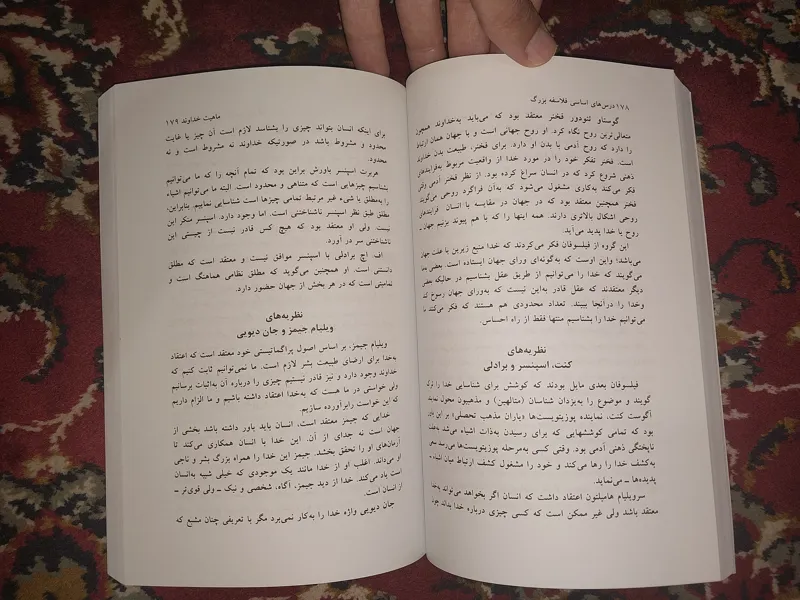 ۱۷۸ درس‌های اساسی فلاسفه بزرگ
گوستاو تئودور فخنر معتقد بود که می‌باید به‌خداوند همچون
متعالی‌ترین روح نگاه کرد. او روح جهانی است و با جهان همان ارتباط
را دارد که روح آدمی با بدن او دارد. برای فخنر، طبیعت بدن خداوند
است. فخنر تفکر خود را در مورد خدا از واقعیت مربوط به‌فرایندهای
ذهنی شروع کرد که در انسان سراغ کرده بود. از نظر فخنر آدمی وقتی
فکر می‌کند به‌کاری مشغول می‌شود که به‌آن فراگرد روحی می‌گویند.
فخنر همچنین معتقد بود که در جهان در مقایسه با انسان فرایندهای
روحی اشکال بالاتری دارند. همه اینها را که با هم پیوند بزنیم جهان ـ
روح یا خدا پدید می‌آید.
این گروه از فیلسوفان فکر می‌کردند که خدا منبع زیرین یا علت جهان
می‌باشد؛ واین اوست که به‌گونه‌ای ورای جهان ایستاده است. بعضی
می‌گویند که خدا را می‌توانیم از طریق عقل بشناسیم در حالیکه بعضی
دیگر معتقدند که عقل قادر به‌این نیست که به‌ورای جهان رسوخ کند
وخدا را درآنجا ببیند. تعداد محدودی هم هستند که فکر می‌کنند ما
می‌توانیم خدا را بشناسیم منتها فقط از راه احساس.
نظریه‌های
کنت، اسپنسر و برادلی
فیلسوفان بعدی مایل بودند که کوشش برای شناسایی خدا را ترک
گویند و موضوع را به‌یزدان شناسان (متالهین) و مذهبیون محول نمایند.
آگوست کنت، نماینده پوزیتویست‌ها «یاران مذهب تحصلی» بر این باور
بود که تمامی کوششهایی که برای رسیدن به‌ذات اشیاء می‌شد به‌علت
ناپختگی ذهنی آدمی بود. وقتی کسی به‌مرحله پوزیتویست‌ها می‌رسد سعی
به‌کشف خدا را رها می‌کند و خود را مشغول کشف ارتباط میان اشیاء ـ
پدیده‌ها ـ می‌نماید.
سرویلیام هامیلتون اعتقاد داشت که انسان اگر بخواهد می‌تواند به‌خدا
معتقد باشد ولی غیر ممکن است که کسی چیزی درباره خدا بداند چون
ماهیت خداوند ۱۷۹
برای اینکه انسان بتواند چیزی را بشناسد لازم است آن چیز یا غایت
محدود و مشروط باشد در صورتیکه خداوند نه مشروط است و نه
محدود.
هربرت اسپنسر باورش براین بود که تمام آنچه را که ما می‌توانیم
بشناسیم چیزهایی است که متناهی و محدود است. البته ما می‌توانیم اشیاء
را به‌مطلق یا شیء غیر مرتبط تمامی چیزها است شناسایی نماییم. بنابراین،
مطلق طبق نظر اسپنسر ناشناختنی است. اما وجود دارد. اسپنسر منکر این
نیست ولی او معتقد بود که هیچ کس قادر نیست از چیستی این
ناشناختنی سر در آورد.
اف. اچ برادلی با اسپنسر موافق نیست و معتقد است که مطلق
دانستنی است. او همچنین می‌گوید که مطلق نظامی هماهنگ است و
تمامیتی است که در هر بخش از جهان حضور دارد.
نظریه‌های
ویلیام جیمز و جان دیویی
ویلیام جیمز، بر اساس اصول پراگماتیستی خود معتقد است که اعتقاد
به‌خدا برای ارضای طبیعت بشر لازم است. ما نمی‌توانیم ثابت کنیم که
خداوند وجود دارد و نیز قادر نیستیم چیزی را درباره آن به‌اثبات برسانیم
ولی خواستی در ما هست که به‌خدا اعتقاد داشته باشیم و ما الزام داریم
که این خواست رابرآورده سازیم.
خدایی که جیمز معتقد است، انسان باید باور داشته باشد بخشی از
جهان است نه جدای از آن. این خدا با انسان همکاری می‌کند تا
آرمان‌های او را تحقق بخشد. جیمز این خدا را همراه بزرگ بشر و ناجی
او می‌داند. اغلب او از خدا مانند یک موجودی که خیلی شبیه به‌انسان
است یاد می‌کند. خدا از دید جیمز، آگاه، شخصی و نیک ـ ولی قوی‌تر ـ
از انسان است.
جان دیویی واژه خدا را به‌کار نمی‌برد مگر با تعریفی چنان مشبع که